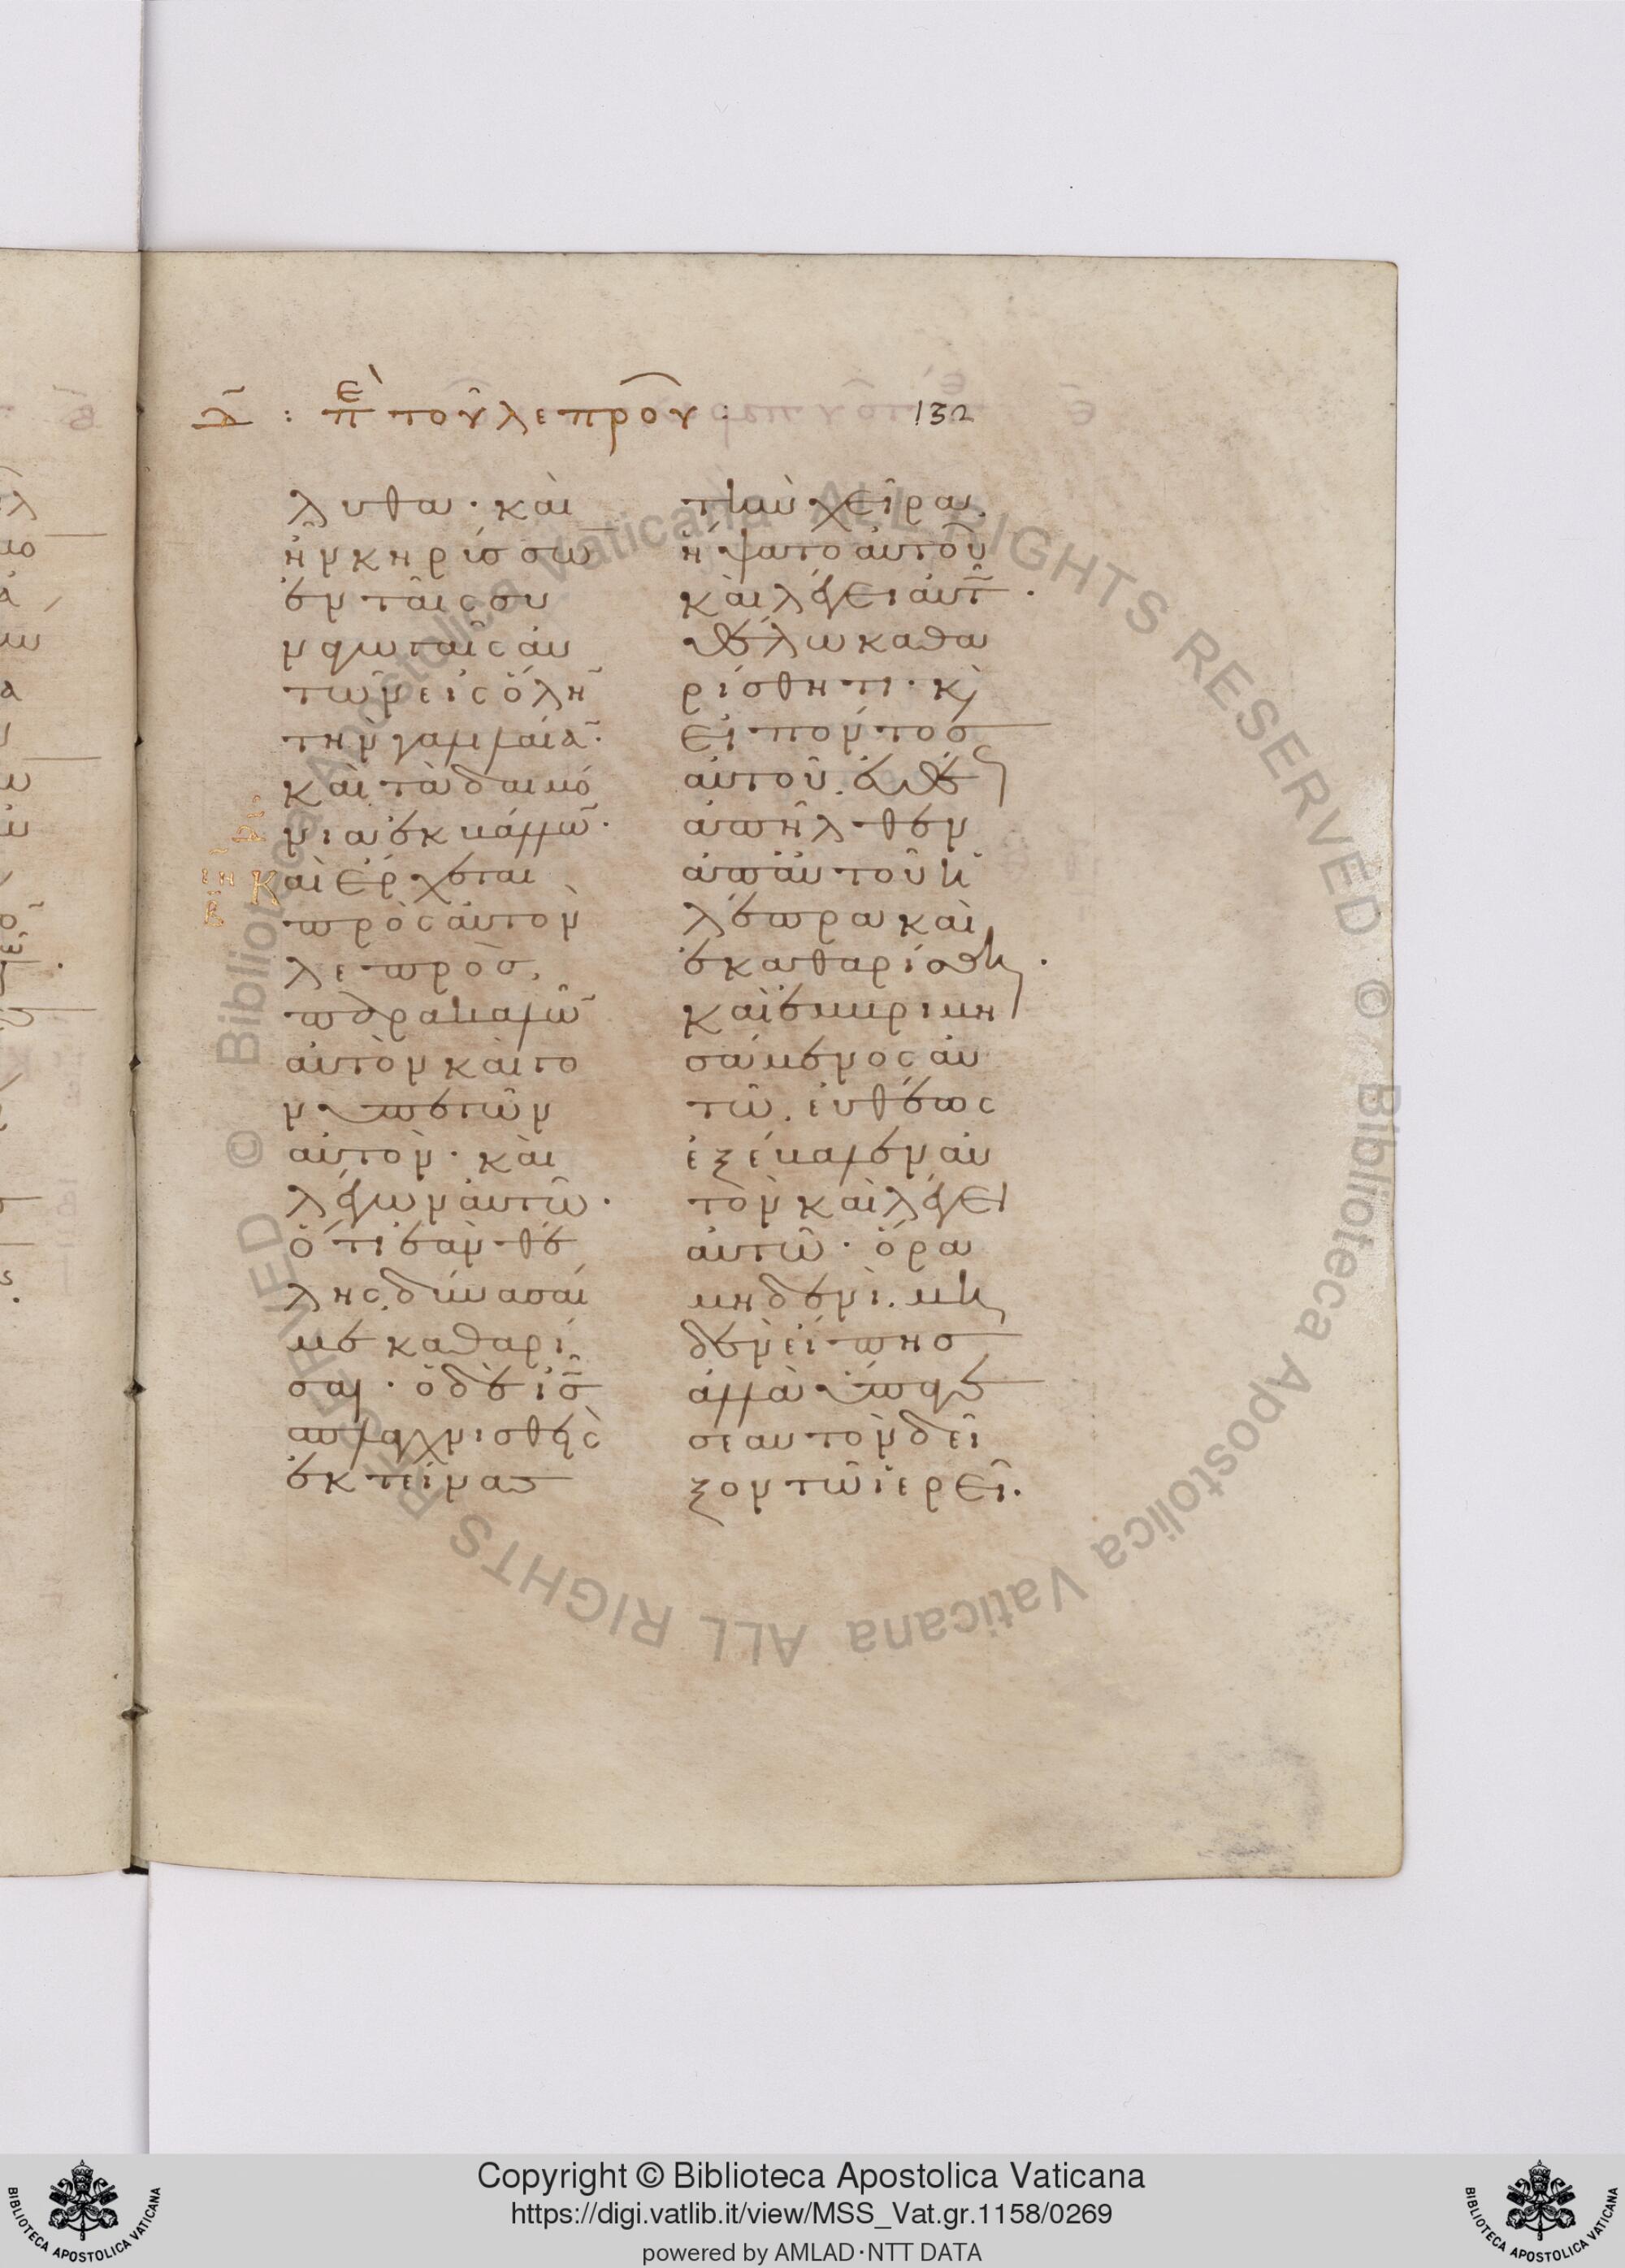 Δ̄ : πὲ τοῦ λεπροῦ :
132
λυθα · καὶ
ἦν κηρύσσω̄
ἐν ταῖς συ
ναγωγαῖς αὐ
τῶν εἰς ὅλη̄
τὴν γαλιλαίᾱ·
καὶ τὰ δαιμό
νια ἐκβάλλω̄·
Καὶ ἔρχεται
πρὸς αὐτὸν
λεπρὸς,
παρακαλῶ̄
αὐτὸν καὶ γο
νυπετῶν
αὐτὸν · καὶ
λέγων αὐτῶ·
ὅτι ἐὰν θέ
λης, δύνασαί
με καθαρί
σαι · ὁ δὲ ις̄
σπλαγχνισθεὶς
ἐκτείνας
τὴν χεῖρα,
ἥψατο αὐτοῦ
καὶ λέγει αὐτ͂ ·
θέλω καθα
ρίσθητι · κ̀
εἰπόντος
αὐτοῦ, εὐθέ
ἀπῆλθεν
ἀπ' αὐτοῦ ἡ
λέπρα καὶ
ἐκαθαρίσθη ·
καὶ ἐμβριμη
σάμενος αὐ
τῶ, εὐθέως
ἐξέβαλεν αὐ
τὸν καὶ λέγει
αὐτῶ · ὅρα
μηδενὶ, μη
δὲν εἴπης
ἀλλὰ ὕπαγε
σεαυτὸν δεῖ
ξον τῶ ἱερεῖ.
© Biblioteca Apostolica Vaticana ALL RIGHTS RESERVED © Biblioteca Apostolica Vaticana ALL RIGHTS RESERVED
Copyright © Biblioteca Apostolica Vaticana
https://digi.vatlib.it/view/MSS_Vat.gr.1158/0269
powered by AMLAD·NTT DATA
BIBLIOTECA APOSTOLICA VATICANA
BIBLIOTECA APOSTOLICA VATICANA